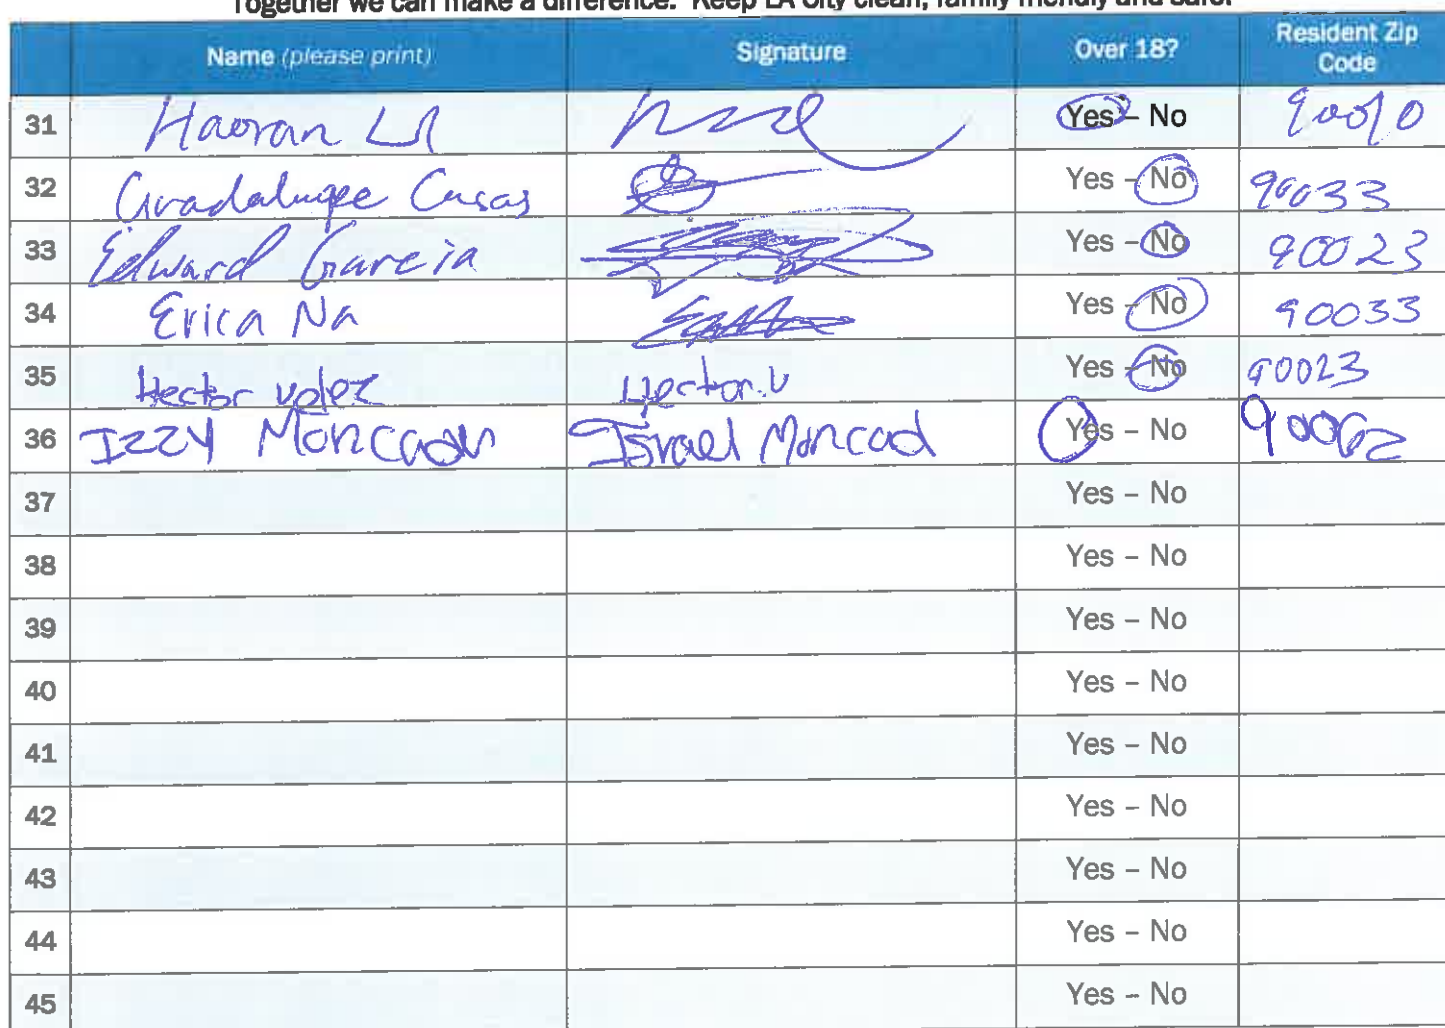 Together we can make a difference. Keep LA City clean, family friendly and safe!
Name (please print) Signature Over 18? Resident Zip Code
31 Haoran LI Yes – No 90010
32 Guadalupe Casas Yes – No 90033
33 Edward Garcia Yes – No 90023
34 Erica Na Yes – No 90033
35 Hector Velez Hector.V Yes – No 90023
36 Izzy Moncada Israel Moncad Yes – No 90062
37 Yes – No
38 Yes – No
39 Yes – No
40 Yes – No
41 Yes – No
42 Yes – No
43 Yes – No
44 Yes – No
45 Yes – No